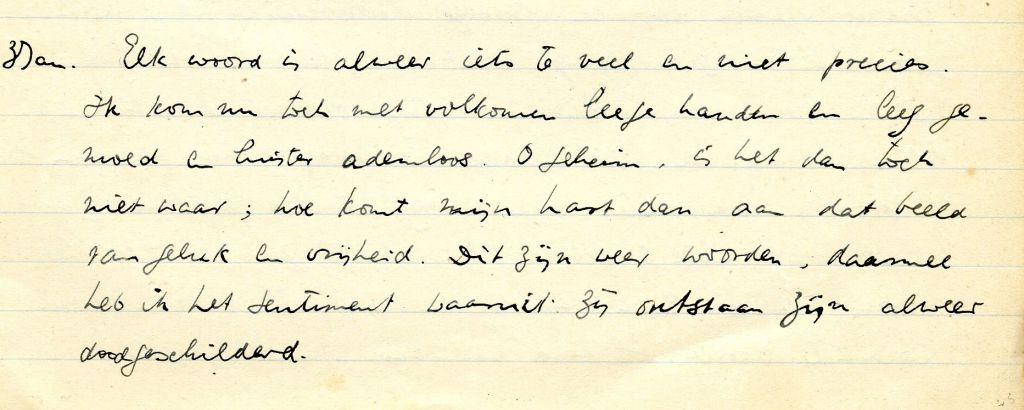 3 Jan. Elk woord is alweer iets te veel en niet precies.
Ik kom nu toch met volkomen leege handen en leeg ge-
moed en luister ademloos. O geheim, is het dan toch
niet waar; hoe komt mijn hart dan aan dat beeld
van geluk en vrijheid. Dit zijn weer woorden, daarmee
heb ik het sentiment waaruit zij ontstaan zijn alweer
doodgeschilderd.